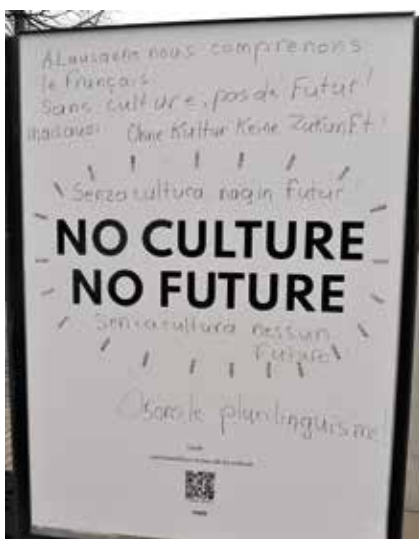 A Lausanne nous comprenons
le français.
Sans culture, pas de Futur!
mais aussi Ohne Kultur Keine Zukunft!
Senza cultura nagin futur
NO CULTURE
NO FUTURE
Senza cultura nessun
Futuro
Osons le plurilinguisme!